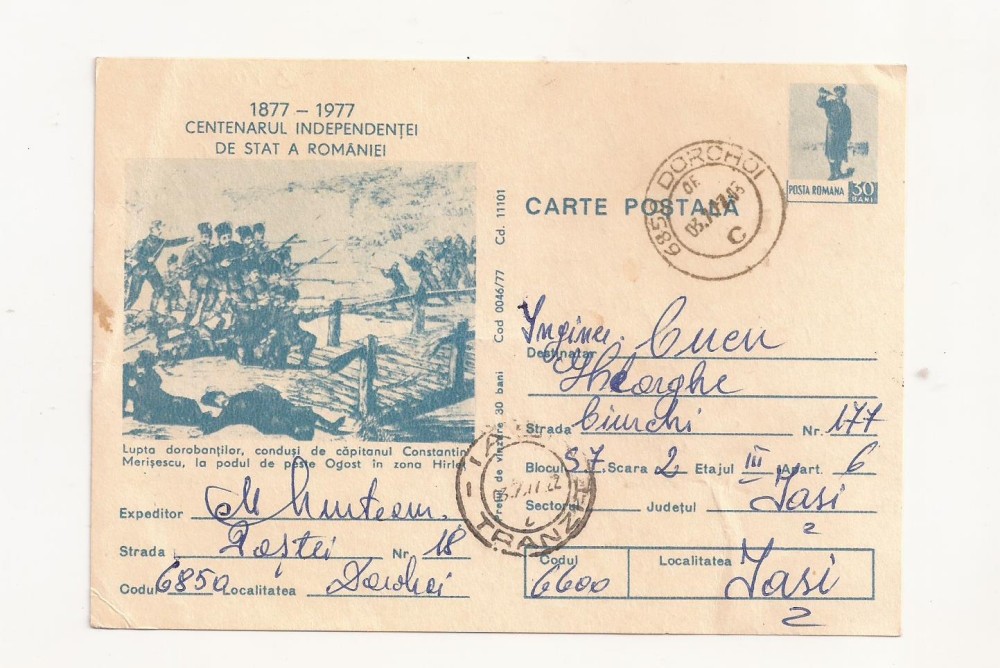 1877 – 1977
CENTENARUL INDEPENDENȚEI
DE STAT A ROMÂNIEI
Lupta dorobanților, conduși de căpitanul Constantin
Merișescu, la podul de peste Ogost în zona Hirleț
Expeditor M Munteanu
Strada Poștei Nr. 18
Codul 6850 Localitatea Dorohoi
Prețul de vînzare 30 bani Cod 0046/77 Cd. 11101
CARTE POȘTALĂ
POSTA ROMANA 30
BANI
6850 DOROHOI
C
IAȘI
TRANZIT
Destinatar Inginer Cucu
Gheorghe
Strada Ciurchi Nr. 177
Blocul S7, Scara 2 Etajul III Apart. 6
Sectorul Județul Iasi
2
Codul Localitatea
6600 Iasi
2